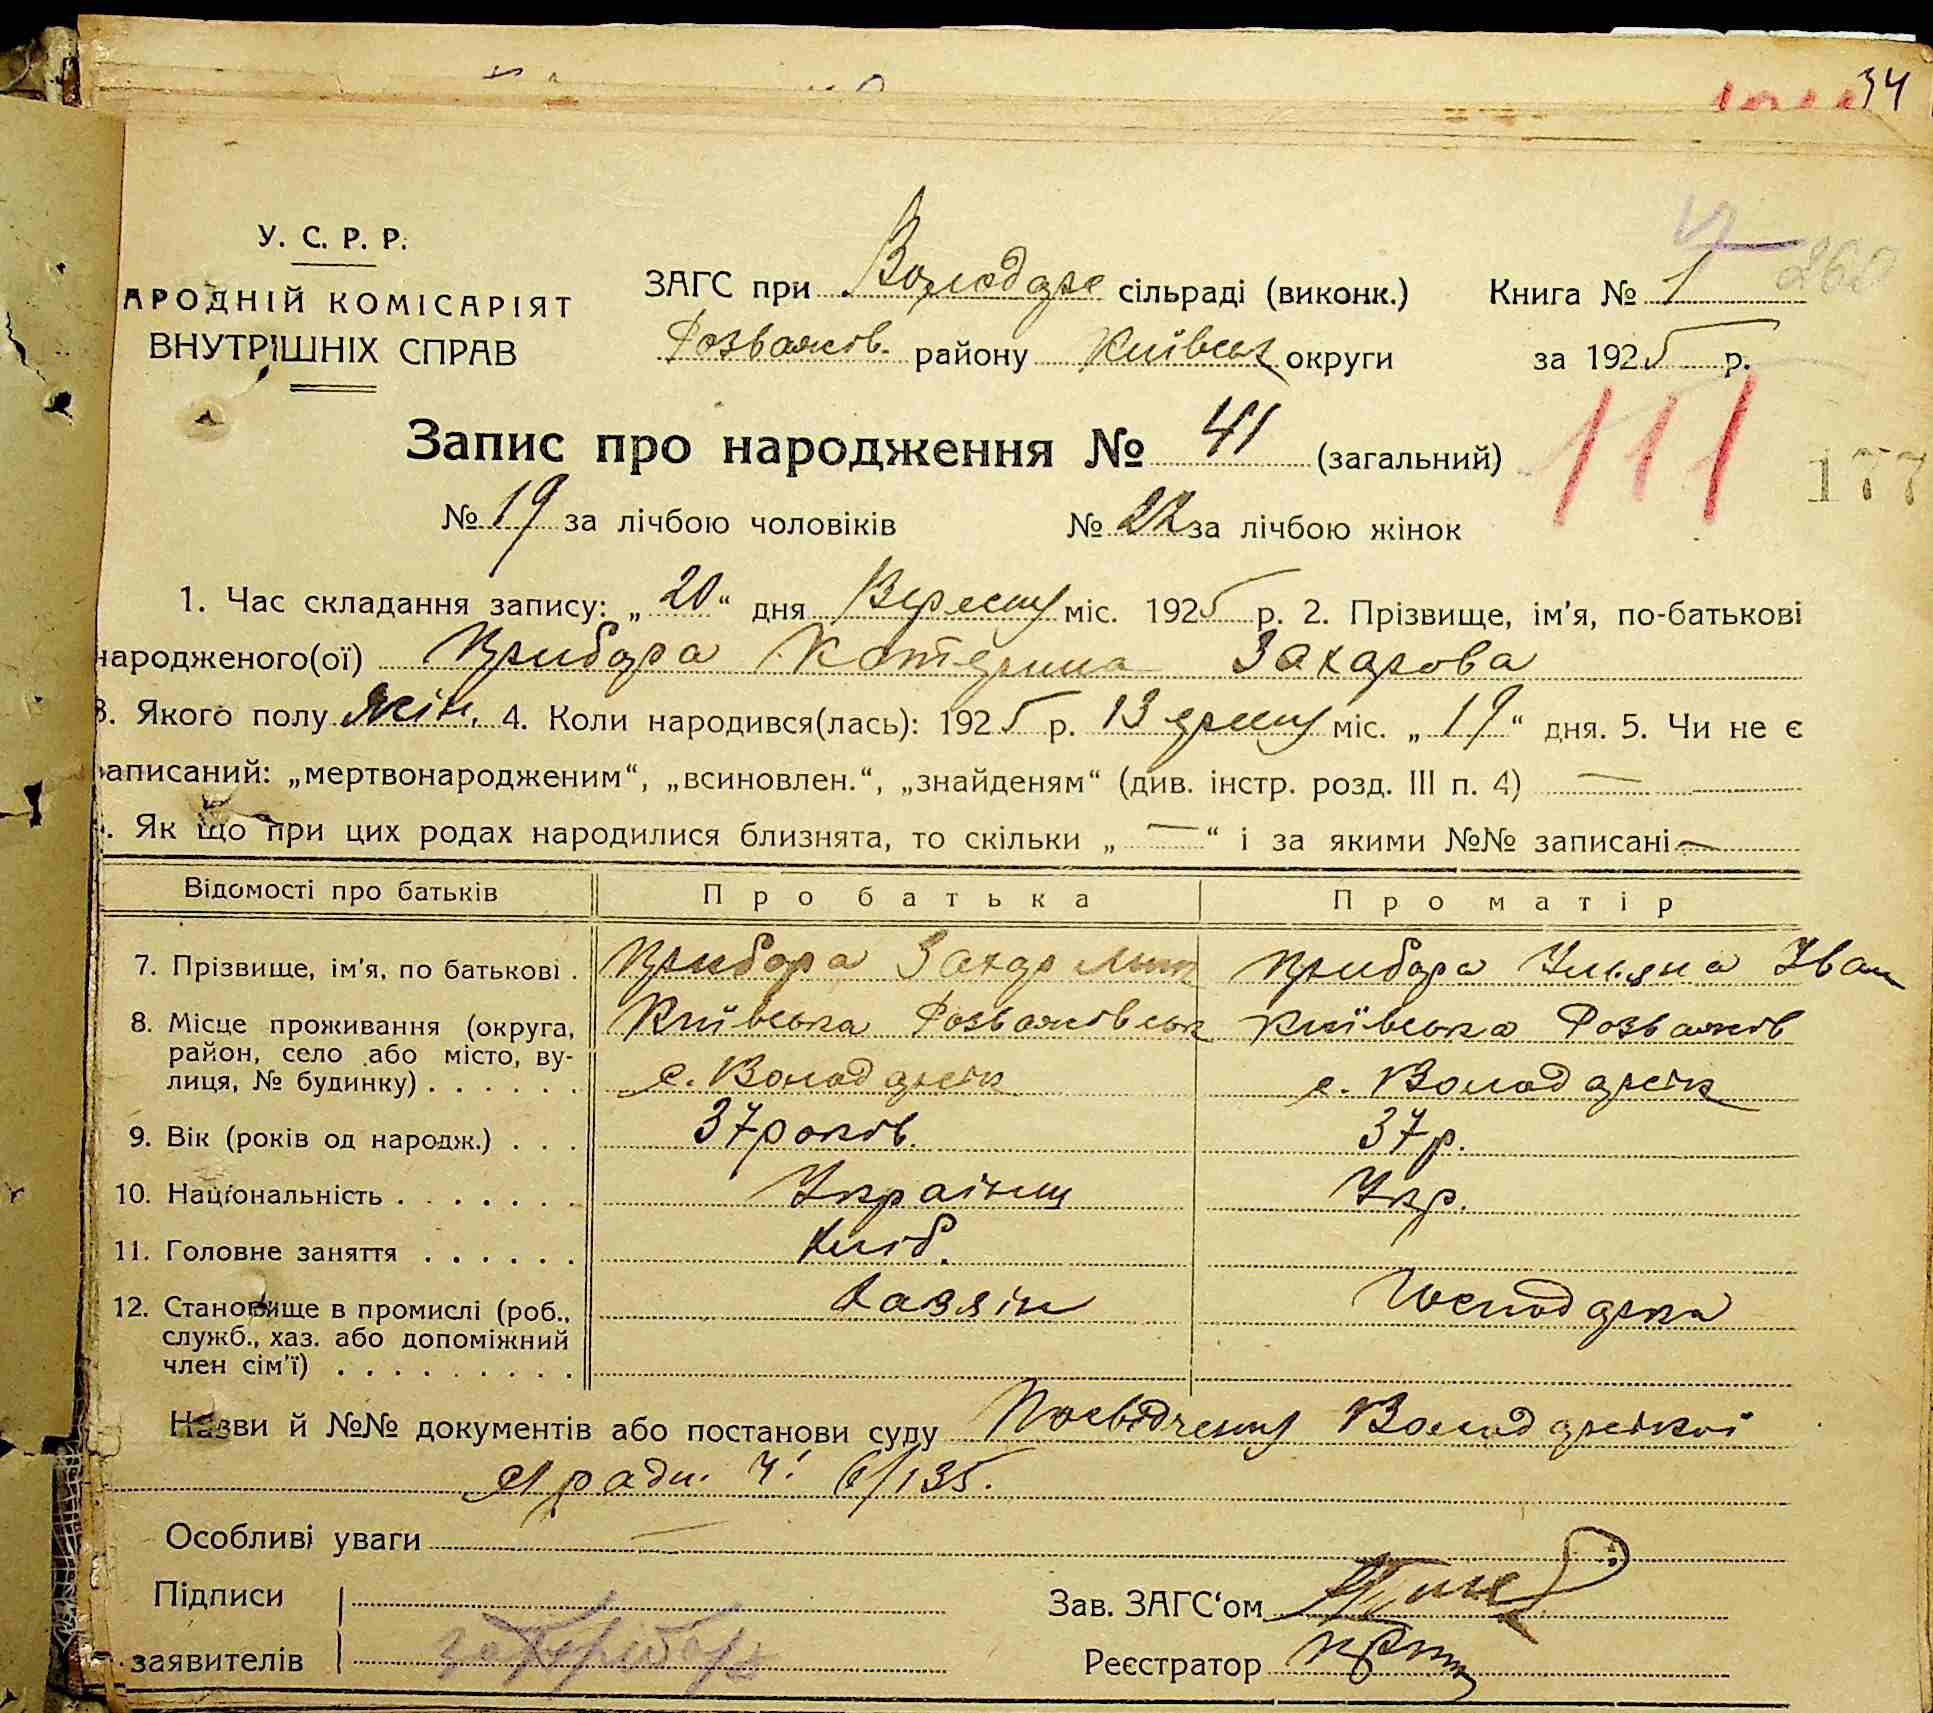 34
У. С. Р. Р.
АРОДНІЙ КОМІСАРІЯТ
ВНУТРІШНІХ СПРАВ
ЗАГС при Володарс сільраді (виконк.)
Книга № 1
260
Розважів. району Київськ округи
за 1925 р.
111
177
Запис про народження № 41 (загальний)
№ 19 за лічбою чоловіків № 22 за лічбою жінок
1. Час складання запису: „20“ дня Вересня міс. 1925 р. 2. Прізвище, ім'я, по-батькові
народженого(ої) Прибора Катерина Захарова
3. Якого полу жін. 4. Коли народився(лась): 1925 р. міс. „19“ дня. 5. Чи не є
аписаний: „мертвонародженим“, „всиновлен.“, „знайденям“ (див. інстр. розд. III п. 4) —
. Як що при цих родах народилися близнята, то скільки „—“ і за якими №№ записані —
Відомості про батьків Про батька Про матір
7. Прізвище, ім'я, по батькові . Прибора Захар Мик Прибора Ульяна Іван
8. Місце проживання (округа, Київська Розважівськ Київська Розважів
район, село або місто, ву-
лиця, № будинку) . . . . . . с. Володарськ с. Володарськ
9. Вік (років од народж.) . . . 37 років. 37 р.
10. Національність . . . . . . . Українц Укр.
11. Головне заняття . . . . . . Хліб.
12. Становище в промислі (роб., Хазяін Господарка
служб., хаз. або допоміжний
член сім'ї) . . . . . . . . .
Назви й №№ документів або постанови суду Посвідчення Володарської
с/ради. Ч: 6/135.
Особливі уваги —
Підписи
Зав. ЗАГС‘ом
заявителів
Реєстратор